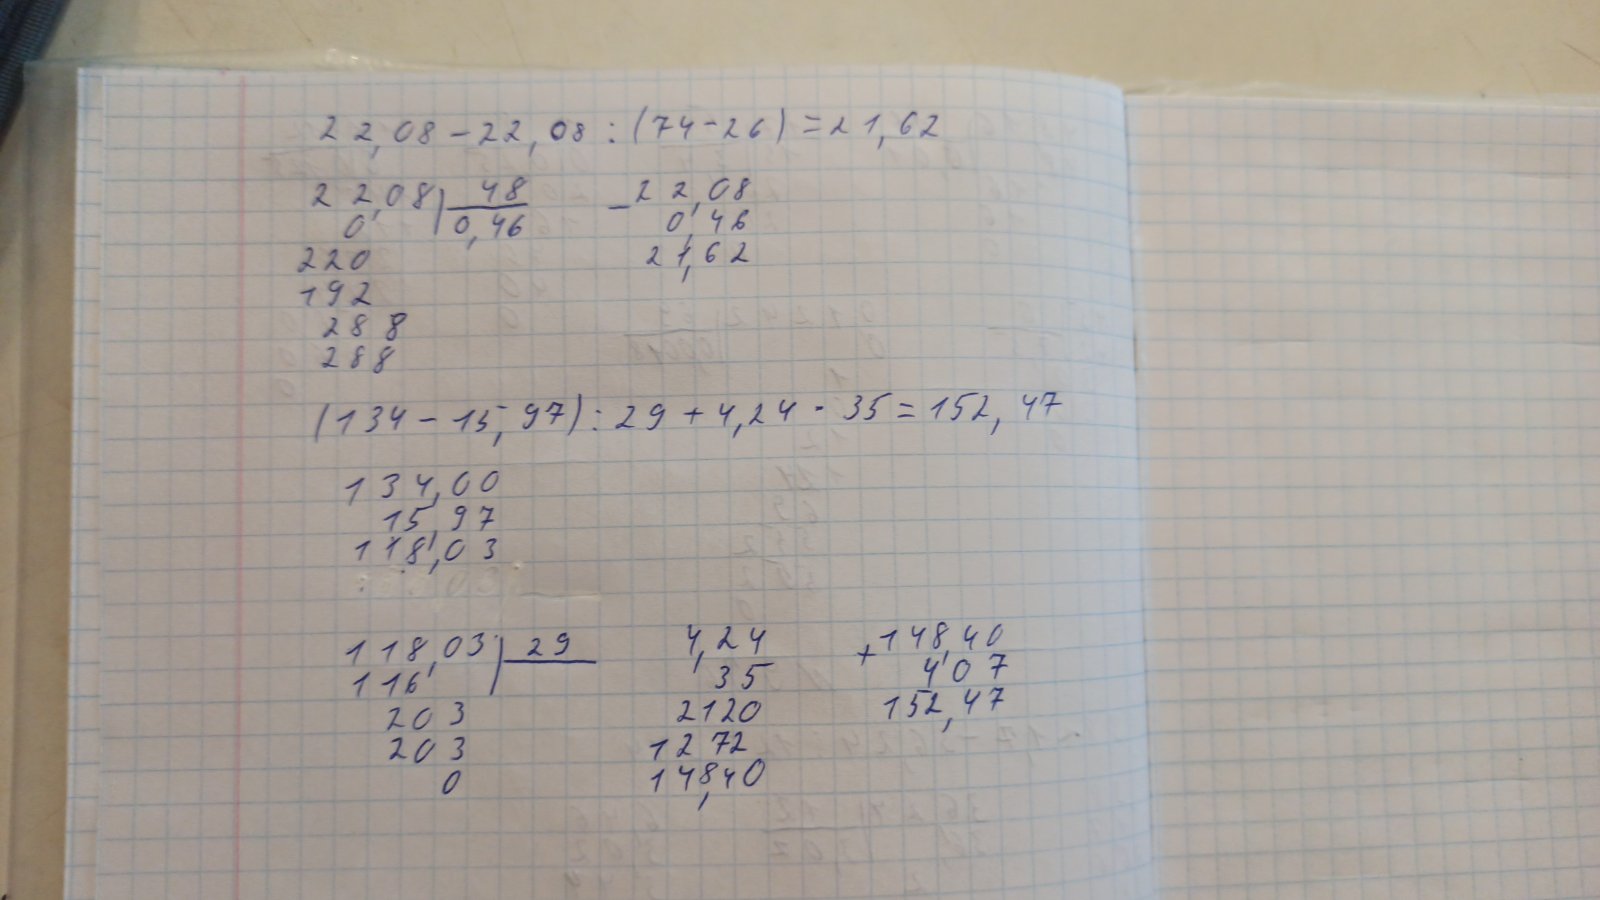 22,08-22,08:(74-26)=21,62
22,08 48 -22,08
0 0,46 0,46
220 21,62
192
288
288
(134-15,97):29+4,24·35=152,47
134,00
15,97
118,03
118,03 29 4,24 +148,40
116 35 4,07
203 2120 152,47
203 1272
0 148,40